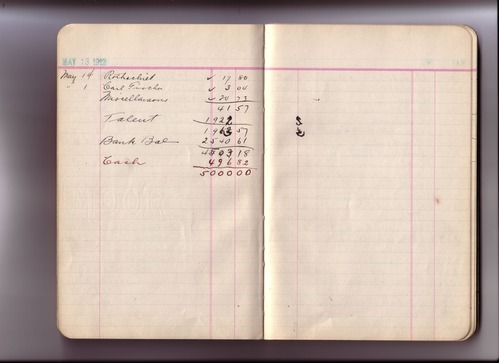 MAY 13 1912
May 14 Rothschild ✓ 17 80
" 1 Carl Fischer ✓ 3 04
Miscellaneous ✓ 20 73
41 57
Talent 1921
1962 57
Bank Bal 2540 61
4503 18
Cash 496 82
5000 00